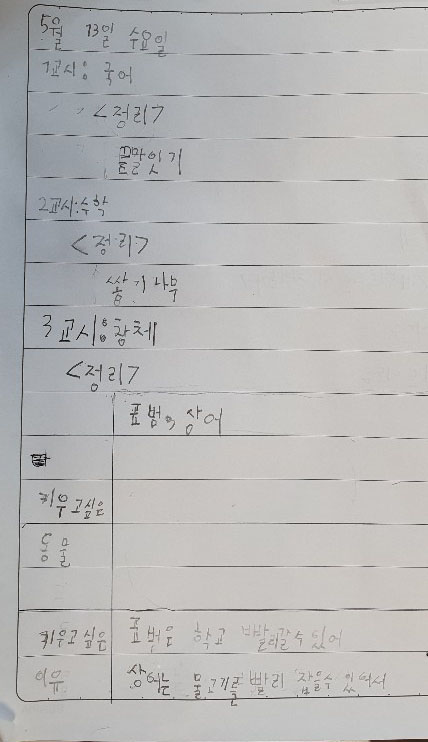 5월 13일 수요일
1교시: 국어
<정리>
끝말잇기
2교시:수학
<정리>
쌓기나무
3교시:창체
<정리>
표범, 상어
키우고싶은
동물
키우고싶은 표범은 학교 빨리갈수있어
이유 상어는 물고기를 빨리 잡을수 있어서